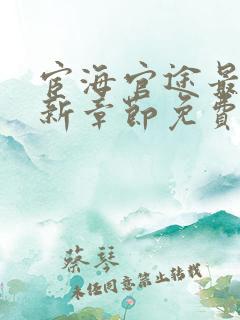 宦海官途最
新章節免費
蔡琴
未经同意禁止转载